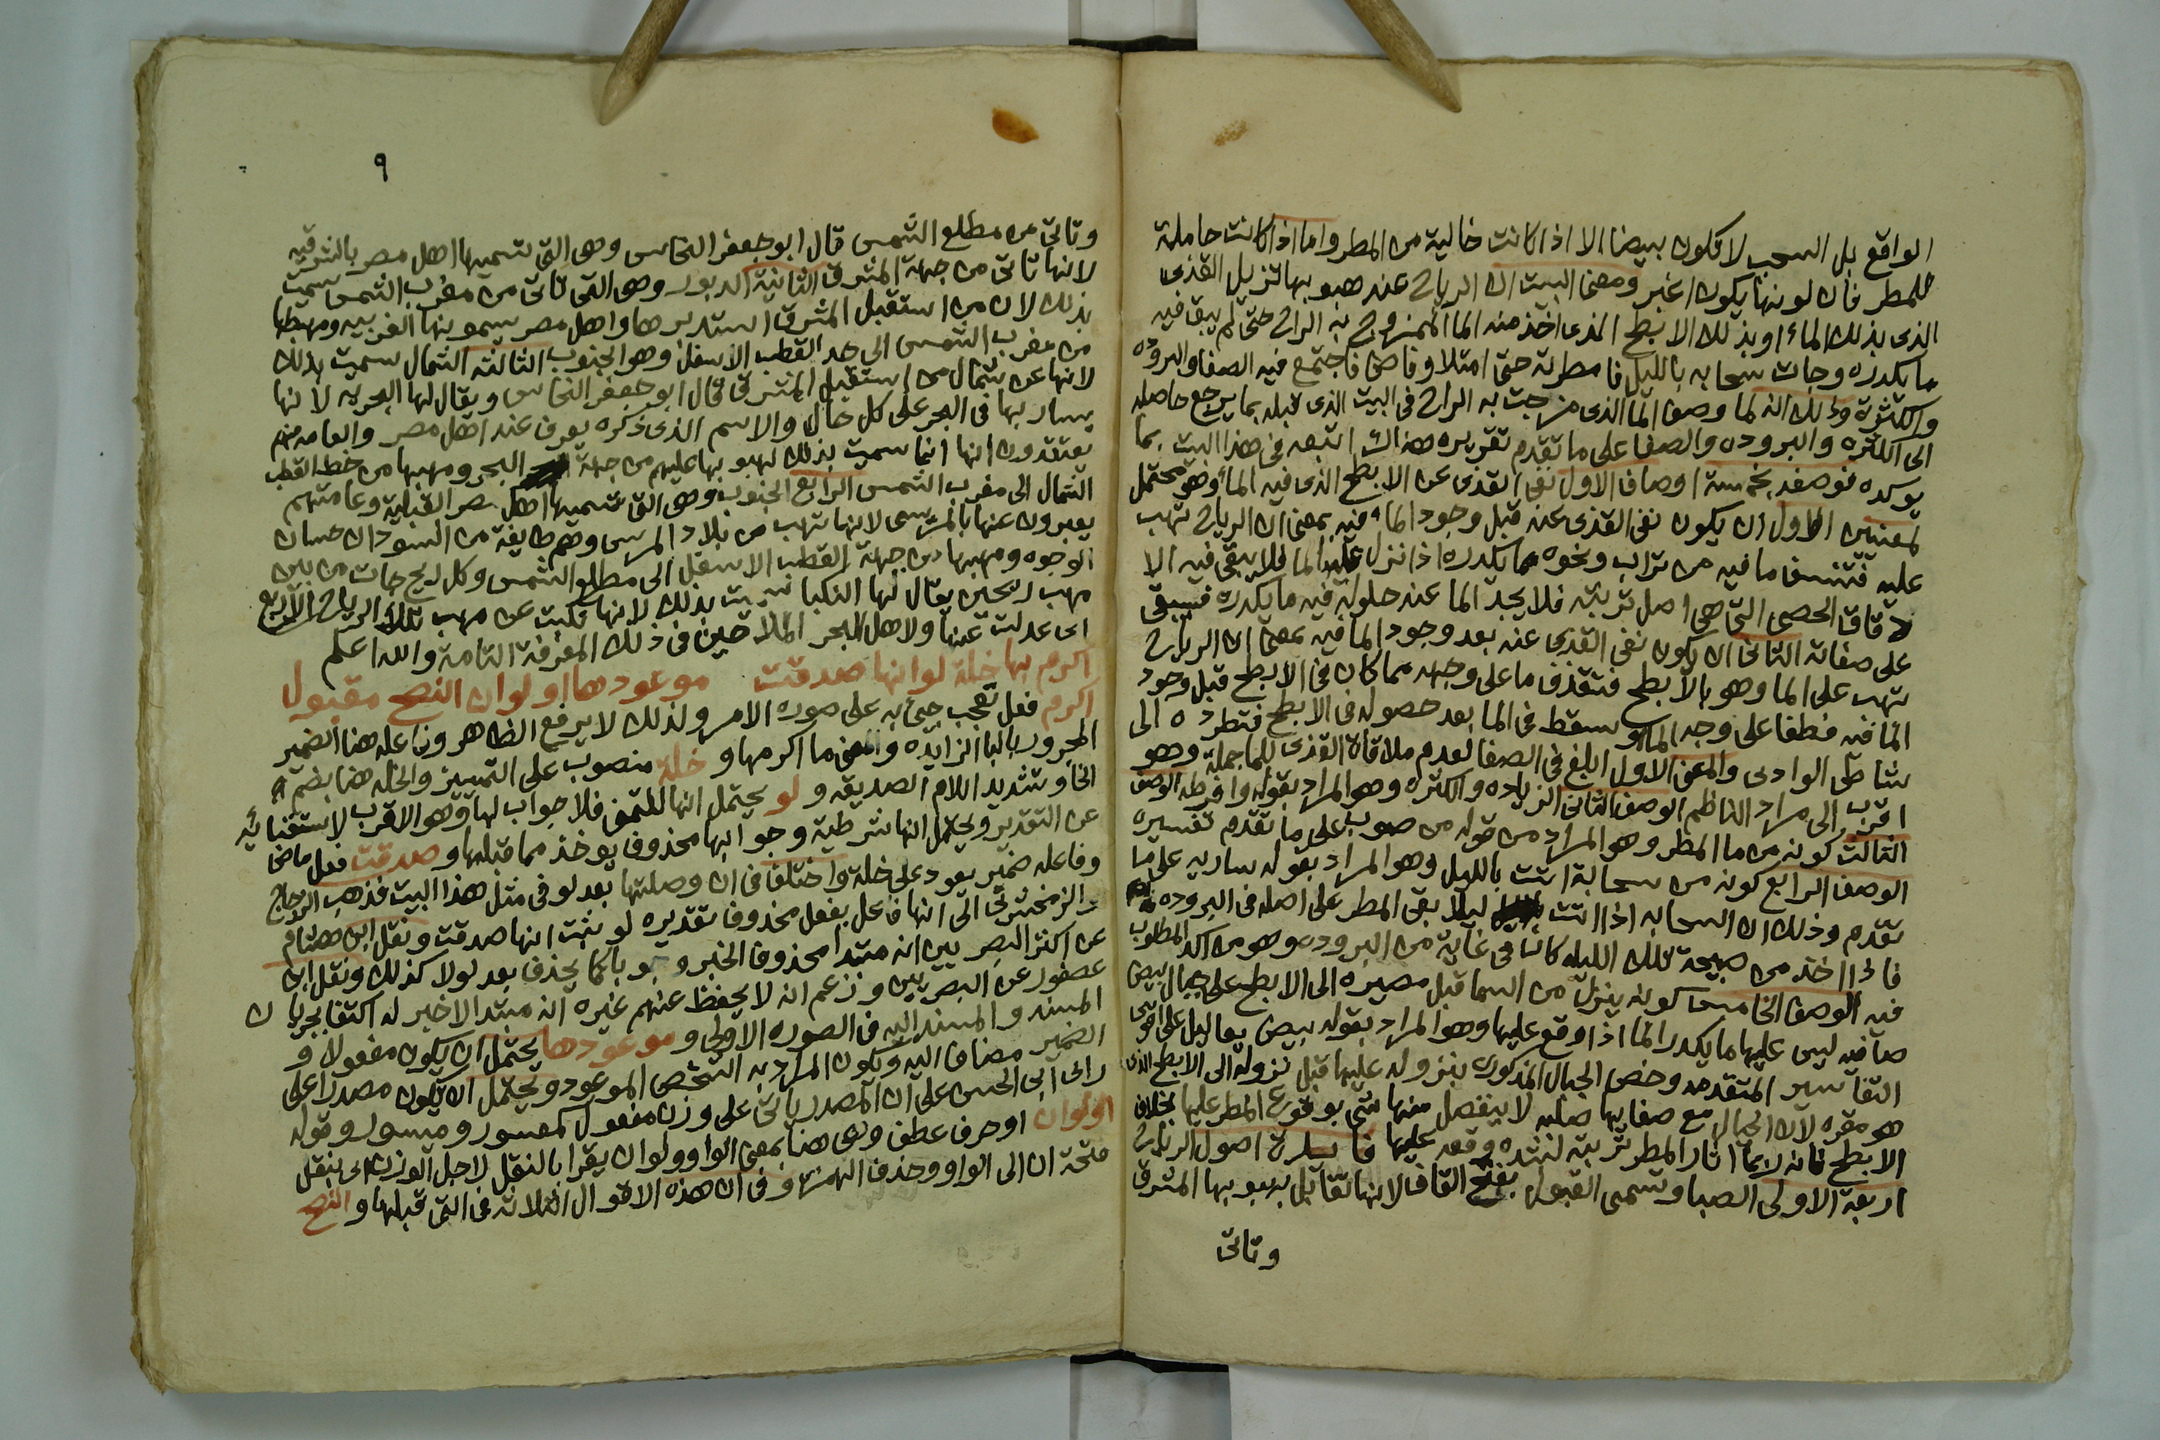 الواقع بل السحب لا تكون بيضا الا اذا كانت خالية من المطر واما اذا كانت حاملة
للمطر فان لونها يكون اغبر ومعنى البيت ان الرياح عند هبوبها تزيل القذى
الذى بذلك الماء او بذلك الابطح الذى اخذ منه الما الممزوج به الراح حتى لم يبق فيه
ما يكدره وجات سحابه بالليل فامطرته حتى امتلا وفاض فاجتمع فيه الصفا والبروده
والكثرة وذلك انه لما وصف الما الذى مزجت به الراح فى البيت الذى قبله بما يرجع حاصله
الى الكثره والبروده والصفا على ما تقدم تقريره هناك اتبعه فى هذا البيت بما
يوكده فوصفه بخمسة اوصاف الاول نفى القذى عن الابطح الذى فيه الماء وهو يحتمل
لمعنيين الاول ان يكون نفى القذى عنه قبل وجود الماء فيه بمعنى ان الرياح تهب
عليه فتنسف ما فيه من تراب ونحوه مما يكدره اذا نزل عليه الما فلا يبقى فيه الا
دقاق الحصى التى هى اصل تربته فلا يجد الما عند حلوله فيه ما يكدره فيبقى
على صفائه الثانى ان يكون نفى القذى عنه بعد وجود الما فيه بمعنى ان الرياح
تهب على الما وهو بالابطح فتقذف ما على وجهه مما كان فى الابطح قبل وجود
الما فيه فطفا على وجه الما او سقط فى الما بعد حصوله فى الابطح فتطرده الى
شاطى الوادى والمعنى الاول ابلغ فى الصفا لعدم ملاقاة القذى للما جملة وهو
اقرب الى مراد الناظم الوصف الثانى الزياده والكثره وهو المراد بقوله وافرطه الوصف
الثالث كونه من ما المطر وهو المراد من قوله من صوب على ما تقدم تفسيره
الوصف الرابع كونه من سحابة اتت بالليل وهو المراد بقوله ساريه على ما
تقدم وذلك ان السحابه اذا اتت ليلا بقى المطر على اصله فى البروده
فاذا اخذ من صبيحة تلك الليله كان فى غاية من البروده وهو من اكد المطلوب
فيه الوصف الخامس كونه ينزل من السما قبل مصيره الى الابطح على جبال بيض
صافيه ليس عليها ما يكدر الما اذا وقع عليها وهو المراد بقوله بيض يعاليل على اقوى
التفاسير المتقدمه وخص الجبال المذكوره بنزوله عليها قبل نزوله الى الابطح الذى
هو مقره لان الجبال مع صفايها صلبه لا ينفصل منها شى بوقوع المطر عليها بخلاف
الابطح فانه ربما اثار المطر تربته لشده وقعه عليها فايدة اصول الرياح
اربعة الاولى الصبا وتسمى القبول بفتح القاف لانها تقابل بهبوبها المشرق
وتاتى
٩
وتاتى من مطلع الشمس قال ابو جعفر النحاس وهى التى تسميها اهل مصر بالشرقيه
لانها تاتى من جهة المشرق الثانية الدبور وهى التى تاتى من مغرب الشمس سميت
بذلك لان من استقبل المشرق استدبرها واهل مصر يسمونها الغربيه ومهبها
من مغرب الشمس الى حد القطب الاسفل وهو الجنوب الثالثه الشمال سميت بذلك
لانها عن شمال من استقبل المشرق قال ابو جعفر النحاس ويقال لها البحريه لانها
يسار بها فى البحر على كل حال والاسم الذى ذكره يعرف عند اهل مصر والعامه منهم
يعتقدون انها انما سميت بذلك لهبوبها عليهم من جهة البحر ومهبها من خط القطب
الشمال الى مغرب الشمس الرابع الجنوب وهى التى تسميها اهل مصر القبلية وعامتهم
يعبرون عنها بالمريسى لانها تهب من بلاد المريس وهم طايفة من السودان حسان
الوجوه ومهبها من جهة القطب الاسفل الى مطلع الشمس وكل ريح جات من بين
مهب ريحين يقال لها النكبا سميت بذلك لانها نكبت عن مهب تلك الرياح الاربع
اى عدلت عنها ولاهل البحر الملاحين فى ذلك المعرفة التامة والله اعلم
اكرم بها خلة لو انها صدقت موعودها او لو ان النصح مقبول
اكرم فعل تعجب جئ به على صوره الامر ولذلك لا يرفع الظاهر وفاعله هنا الضمير
المجرور بالبا الزايده والمعنى ما اكرمها و خلة منصوب على التمييز والخله هنا بضم
الخا وتشديد اللام الصديقه و لو يحتمل انها للتمنى فلا جواب لها وهو الاقرب لاستغنايه
عن التقدير ويحتمل انها شرطية وجوابها محذوف يوخذ مما قبلها و صدقت فعل ماض
وفاعله ضمير يعود على خلة واختلف فى ان وصلتها بعد لو فى مثل هذا البيت فذهب الزجاج
والزمخشرى الى انها فاعل بفعل محذوف تقديره لو ثبت انها صدقت ونقل ابن هشام
عن اكثر البصريين انه مبتدا محذوف الخبر وجوبا كما يحذف بعد لولا كذلك ونقل ابن
عصفور عن البصريين وزعم انه لا يحفظ عنهم غيره انه مبتدا لا خبر له اكتفا بجريان
المسند والمسند اليه فى الصوره الاولى و موعودها يحتمل ان يكون مفعولا و
الضمير مضاف اليه ويكون المراد به الشخص الموعود ويحتمل ان يكون مصدرا على
راى ابى الحسن على ان المصدر ياتى على وزن مفعول كمعسور وميسور وقوله
او لو ان او حرف عطف وهى هنا بمعنى الواو ولو ان يقرا بالنقل لاجل الوزن اى بنقل
فتحة ان الى الواو وحذف الهمزة وفى ان هذه الاقوال الثلاثه فى التى قبلها و النصح